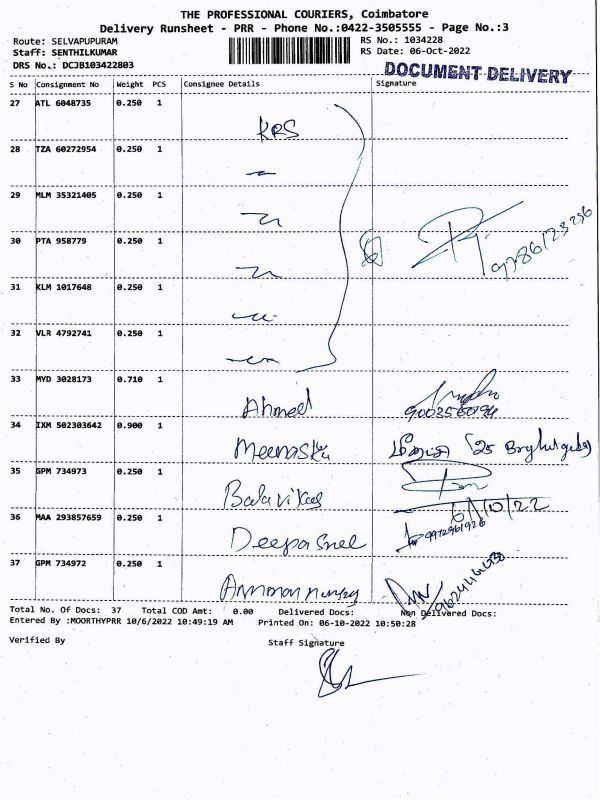 THE PROFESSIONAL COURIERS, Coimbatore
Delivery Runsheet - PRR - Phone No.:0422-3505555 - Page No.:3
Route: SELVAPUPURAM RS No.: 1034228
Staff: SENTHILKUMAR RS Date: 06-Oct-2022
DRS No.: DCJB103422803
DOCUMENT DELIVERY
S No Consignment No Weight PCS Consignee Details Signature
27 ATL 6048735 0.250 1
KRS
28 TZA 60272954 0.250 1
29 MLM 35321405 0.250 1
30 PTA 958779 0.250 1
9786123256
31 KLM 1017648 0.250 1
32 VLR 4792741 0.250 1
33 MYD 3028173 0.710 1
Ahmed
34 IXM 502303642 0.900 1
35 GPM 734973 0.250 1
6/10/22
36 MAA 293857659 0.250 1
37 GPM 734972 0.250 1
Total No. Of Docs: 37 Total COD Amt: 0.00 Delivered Docs: Non Delivered Docs:
Entered By :MOORTHYPRR 10/6/2022 10:49:19 AM Printed On: 06-10-2022 10:50:28
Verified By Staff Signature